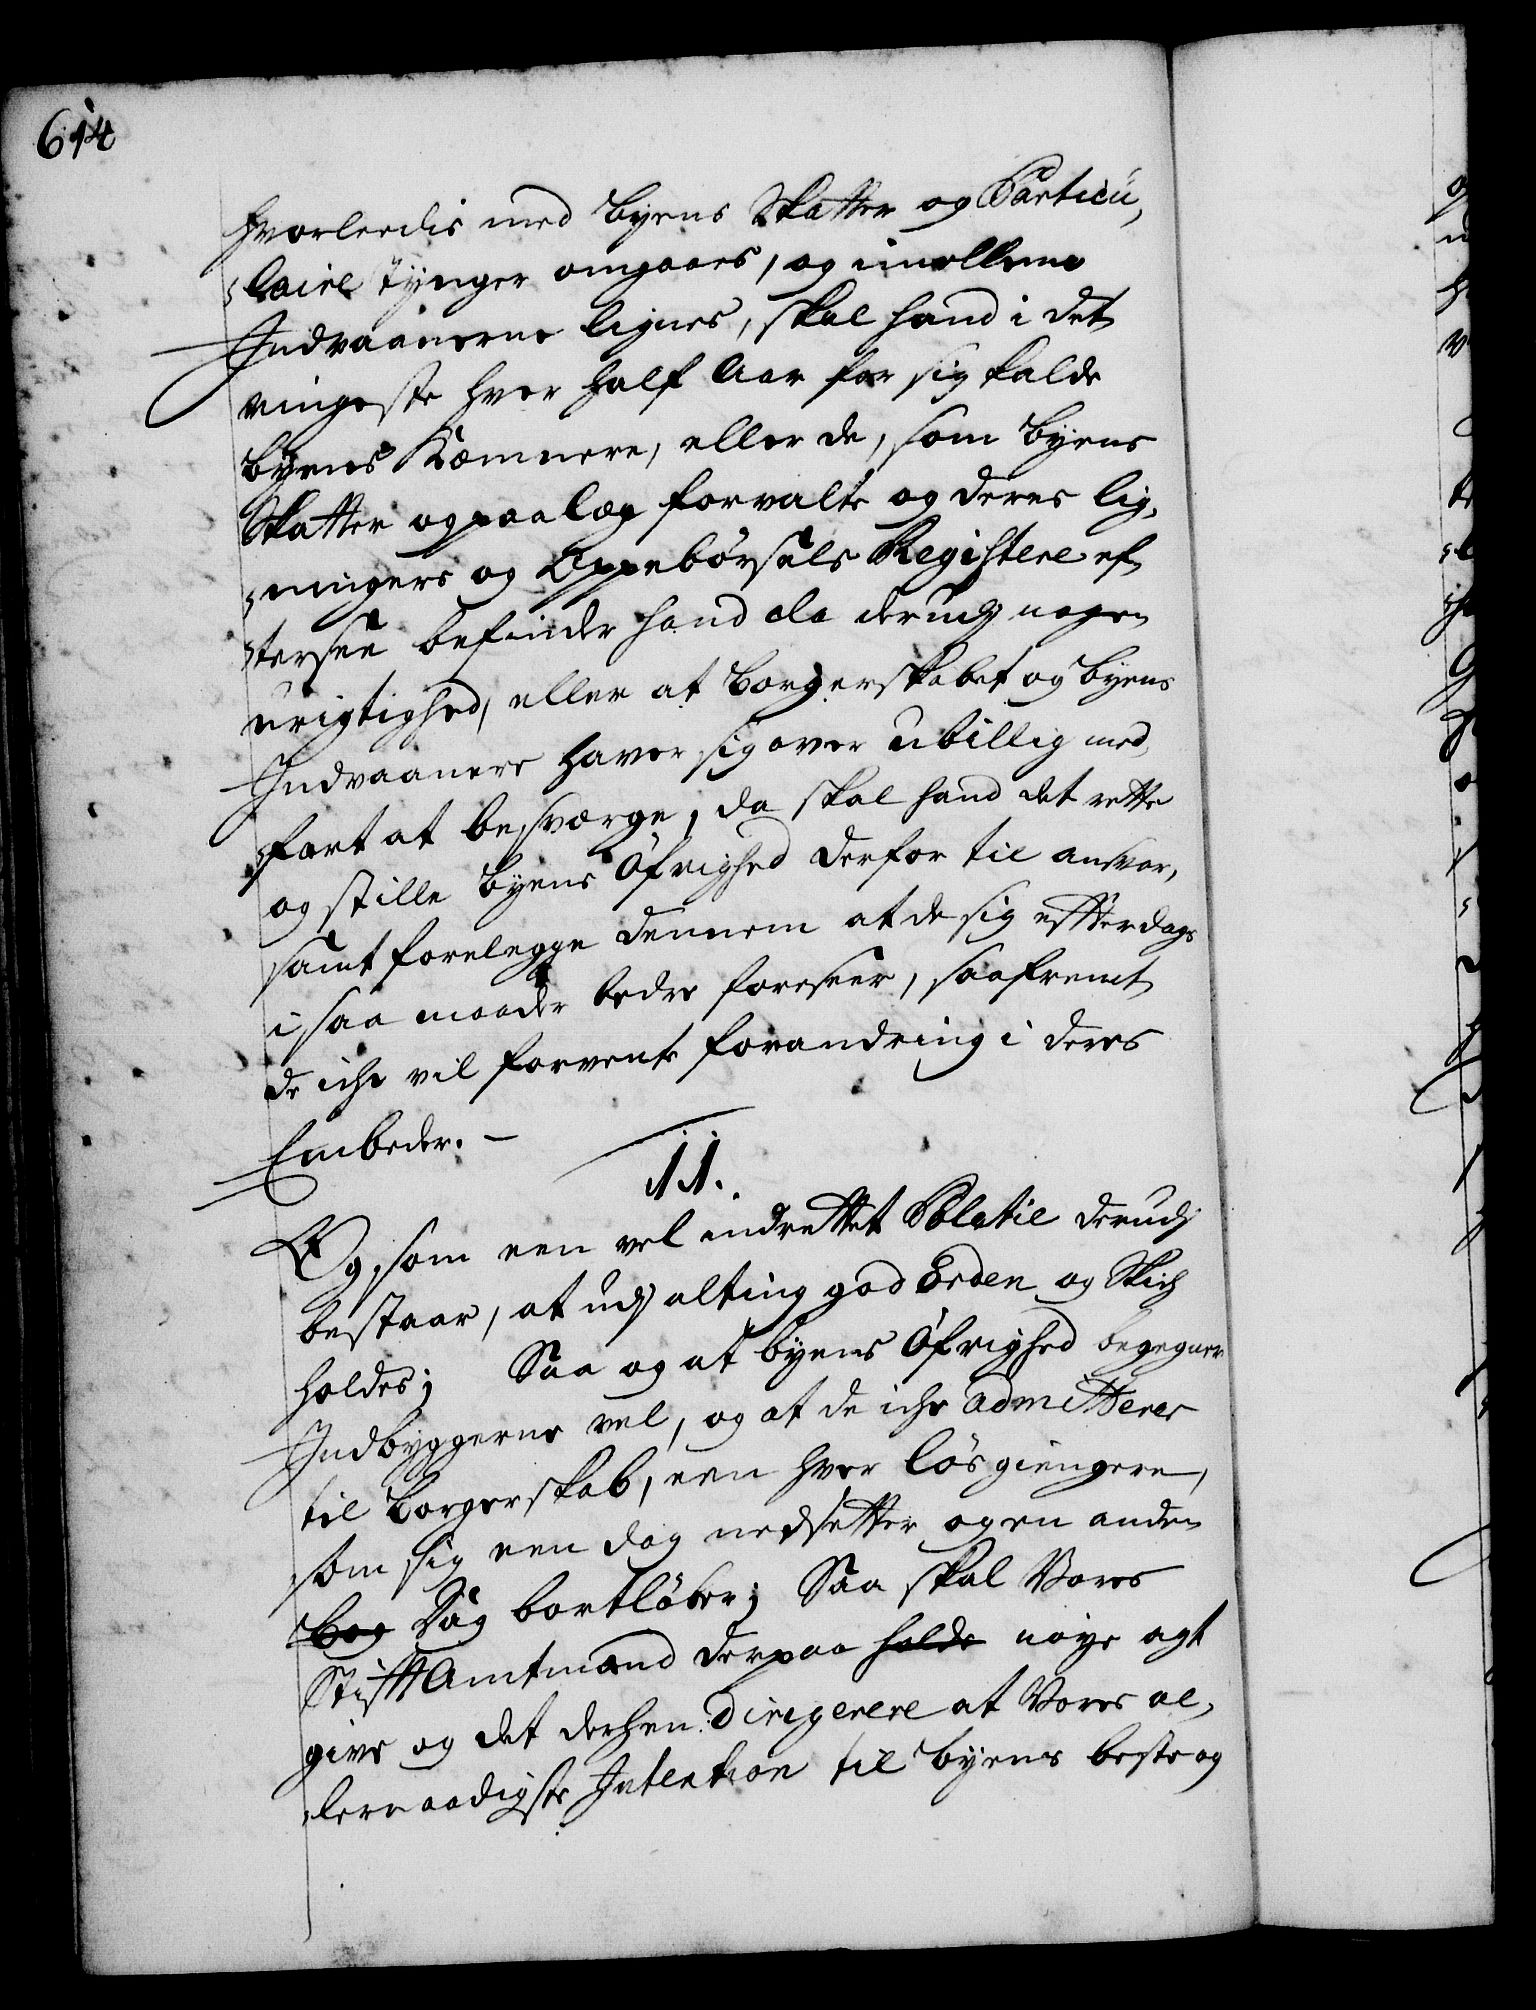 614
hvorleedis med byens Skatter og Particu,
,laire Tynger omgaaes, og imellem
Indvaanerne lignes, skal hand i det
ringeste hver half Aar for sig kalde
byens Kæmnere, eller de, som byens
Skatter og paalæg forvalte og deres lig,
,ningers og Oppebørsels Registere ef,
,tersee befinder hand da derudj nogen
urigtighed, eller at borgerskabet og byens
Indvaanere haver sig over ubillig med,
,fart at besværge, da skal hand det rette
og stille byens Øfrighed derfor til ansvar,
samt forelegge dennem at de sig efterdags
i saa maader bedre foreseer, saafremt
de iche vil forvente forandring i deres
Embeder. –
11.
Og som een vel indrettet Politie derudj
bestaar, at udj alting god Orden og Skich
holdes; Saa og at byens Øfrighed begegner
Indbyggerne vel, og at de iche admitterer
til borgerskab, een hver løsgiengere,
som sig een dag nedsetter og en anden
bog Dag bortløber; Saa skal Vores
StifftAmtmand derpaa holde nøye agt
give og det derhen dirigerere at Vores al,
,lernaadigste Intention til byens beste og